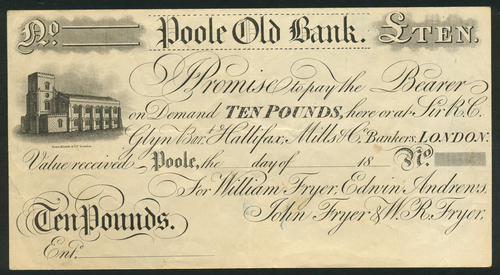 No. Poole Old Bank. £TEN.
I Promise to pay the Bearer
on Demand TEN POUNDS, here or at Sir R. C.
Glyn Bart. Hallifax, Mills & Co. Bankers, LONDON.
Value received Poole, the day of 18 No.
For William Fryer, Edwin Andrews,
John Fryer & W. R. Fryer.
Ten Pounds.
Entd.